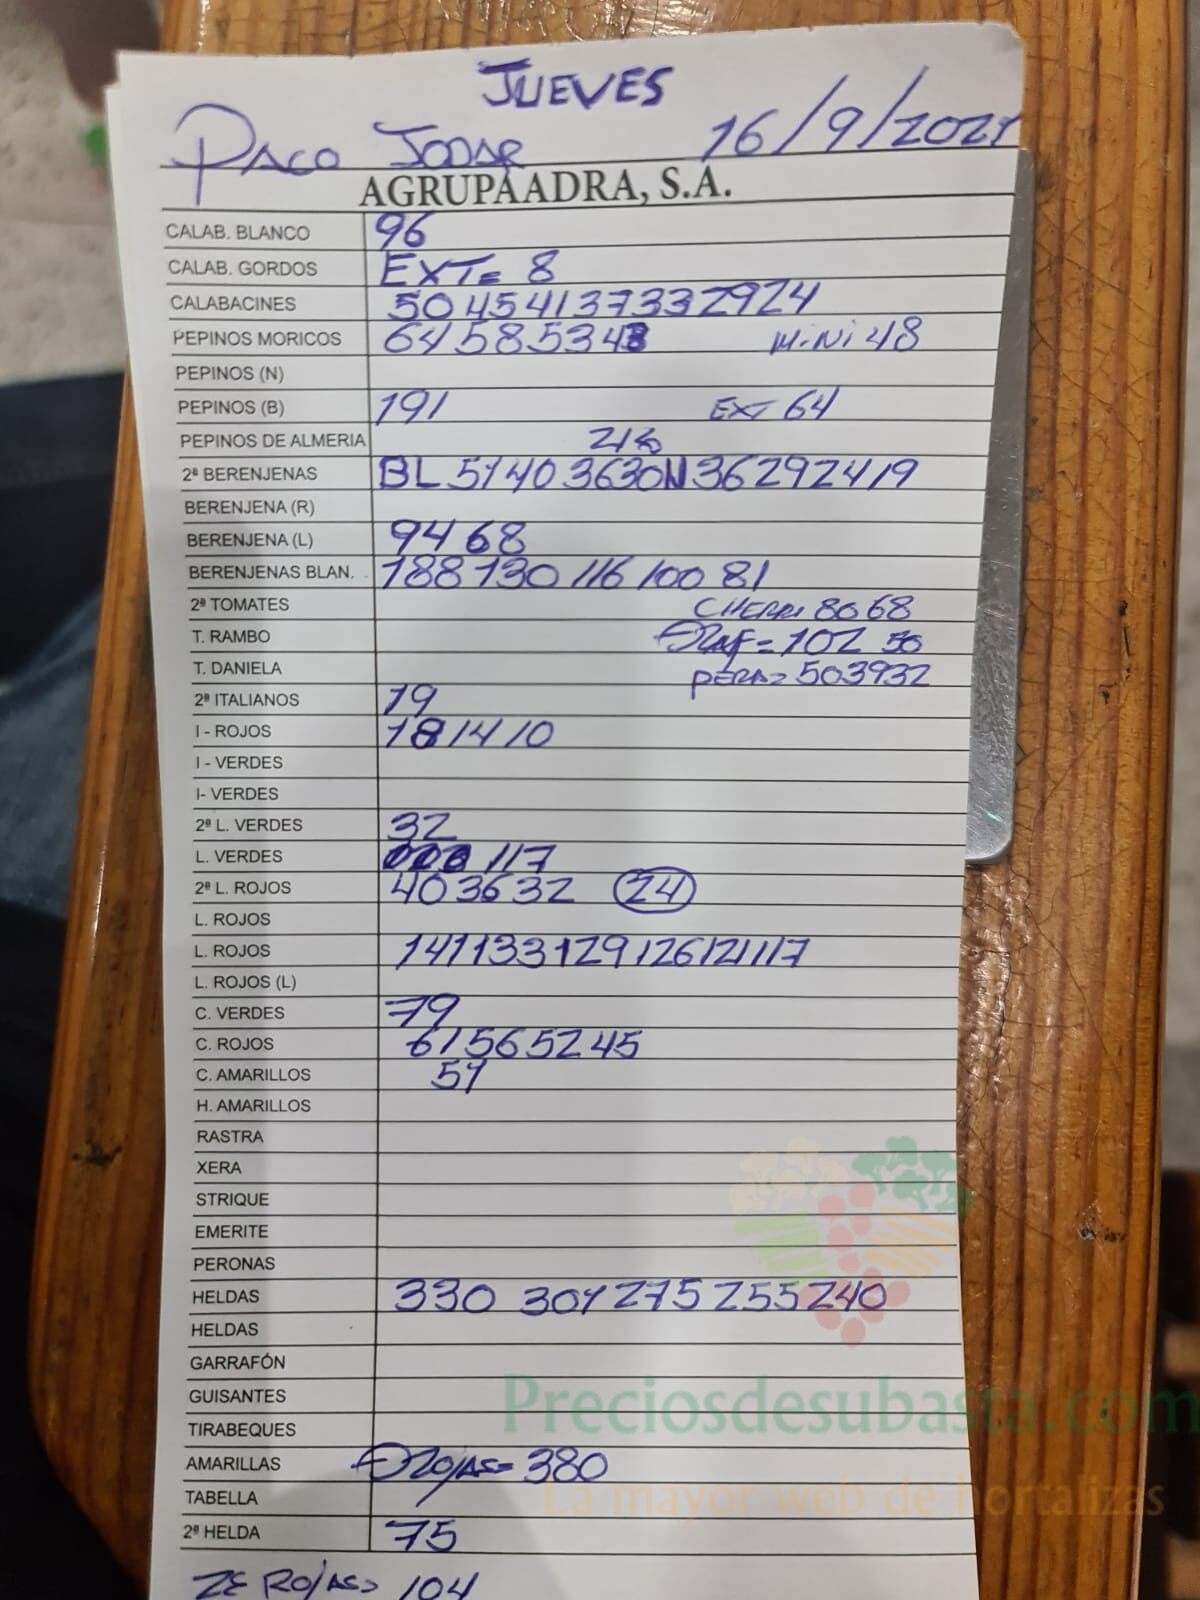 JUEVES
PACO JODAR 16/9/2021
AGRUPAADRA, S.A.
CALAB. BLANCO 96
CALAB. GORDOS EXT= 8
CALABACINES 50 45 41 37 33 29 24
PEPINOS MORICOS 64 58 53 48 MiNi 48
PEPINOS (N)
PEPINOS (B) 191 EXT 64
PEPINOS DE ALMERIA
2ª BERENJENAS BL 51 40 36 30 N 36 29 24 19
BERENJENA (R)
BERENJENA (L) 94 68
BERENJENAS BLAN. 188 130 116 100 81
2ª TOMATES CHERRI 80 68
T. RAMBO = 102 50
T. DANIELA PERA= 50 39 32
2ª ITALIANOS 19
I - ROJOS 18 14 10
I - VERDES
I- VERDES
2ª L. VERDES 32
L. VERDES 117
2ª L. ROJOS 40 36 32 24
L. ROJOS
L. ROJOS 141 133 129 126 121 117
L. ROJOS (L)
C. VERDES 79
C. ROJOS 61 56 52 45
C. AMARILLOS 51
H. AMARILLOS
RASTRA
XERA
STRIQUE
EMERITE
PERONAS
HELDAS 330 301 275 255 240
HELDAS
GARRAFÓN
GUISANTES
Preciosdesubasta.com
TIRABEQUES
AMARILLAS ROJAS= 380
La mayor web de hortalizas
TABELLA
2ª HELDA 75
ROJAS= 104